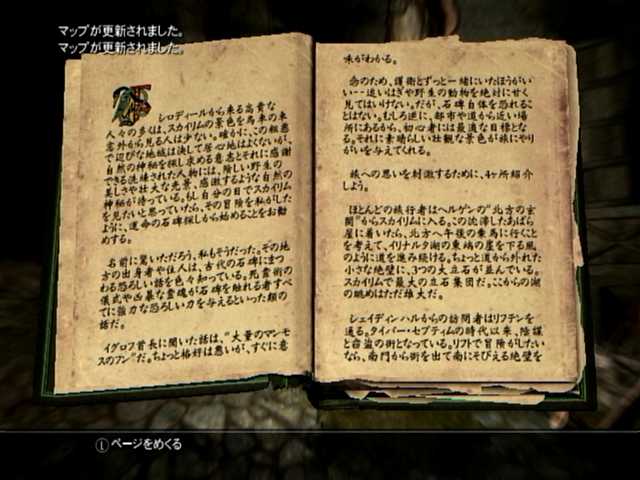 マップが更新されました。
マップが更新されました。
シロディールから来る高貴な
人々の多くは、スカイリムの景色を馬車の車
窓以外から見る人は少ない。確かに、この粗悪
で辺ぴな地域は決して居心地はよくないが、
自然の神秘を探し求める意志とそれに感謝
できる洗練された人物には、険しい野生の
美しさや壮大な光景、感激するような自然の
神秘が待っている。もし自分の目でスカイリム
を見たいと思っていたら、その冒険を私がした
ように、運命の石碑探しから始めることをお勧
めする。
名前に驚いただろう、私もそうだった。その地
方の出身者や住人は、古代の石碑にまつ
わる恐ろしい話を色々知っている。死霊術の
儀式や凶暴な霊魂が石碑を触れる者すべ
てに強力な恐ろしい力を与えるといった類の
話だ。
イグロフ首長に聞いた話は、“大量のマンモ
スのフン”だ。ちょっと格好は悪いが、すぐに意
味がわかる。
念のため、護衛とずっと一緒にいたほうがい
い--追いはぎや野生の動物を絶対に甘く
見てはいけない。だが、石碑自体を恐れるこ
とはない。むしろ逆に、都市や道から近い場
所にあるから、初心者には最適な目標とな
る。それに素晴らしい壮観な景色が旅にやり
がいを与えてくれる。
旅への思いを刺激するために、4ヶ所紹介
しよう。
ほとんどの旅行者はヘルゲンの“北方の玄
関”からスカイリムに入る。この沈滞したあばら
屋に着いたら、北方へ午後の乗馬に行くこと
を考えて、イリナルタ湖の東端の崖を下る風
のように道を進み続ける。ちょっと道から外れた
小さな絶壁に、3つの大立石が並んでいる。
スカイリムで最大の立石集団だ。ここからの湖
の眺めはただ雄大だ。
シェイディンハルからの訪問者はリフテンを
通る。タイバー・セプティムの時代以来、陰謀
と窃盗の街となっている。リフトで冒険がしたい
なら、南門から街を出て南にそびえる絶壁を
Ⓛページをめくる